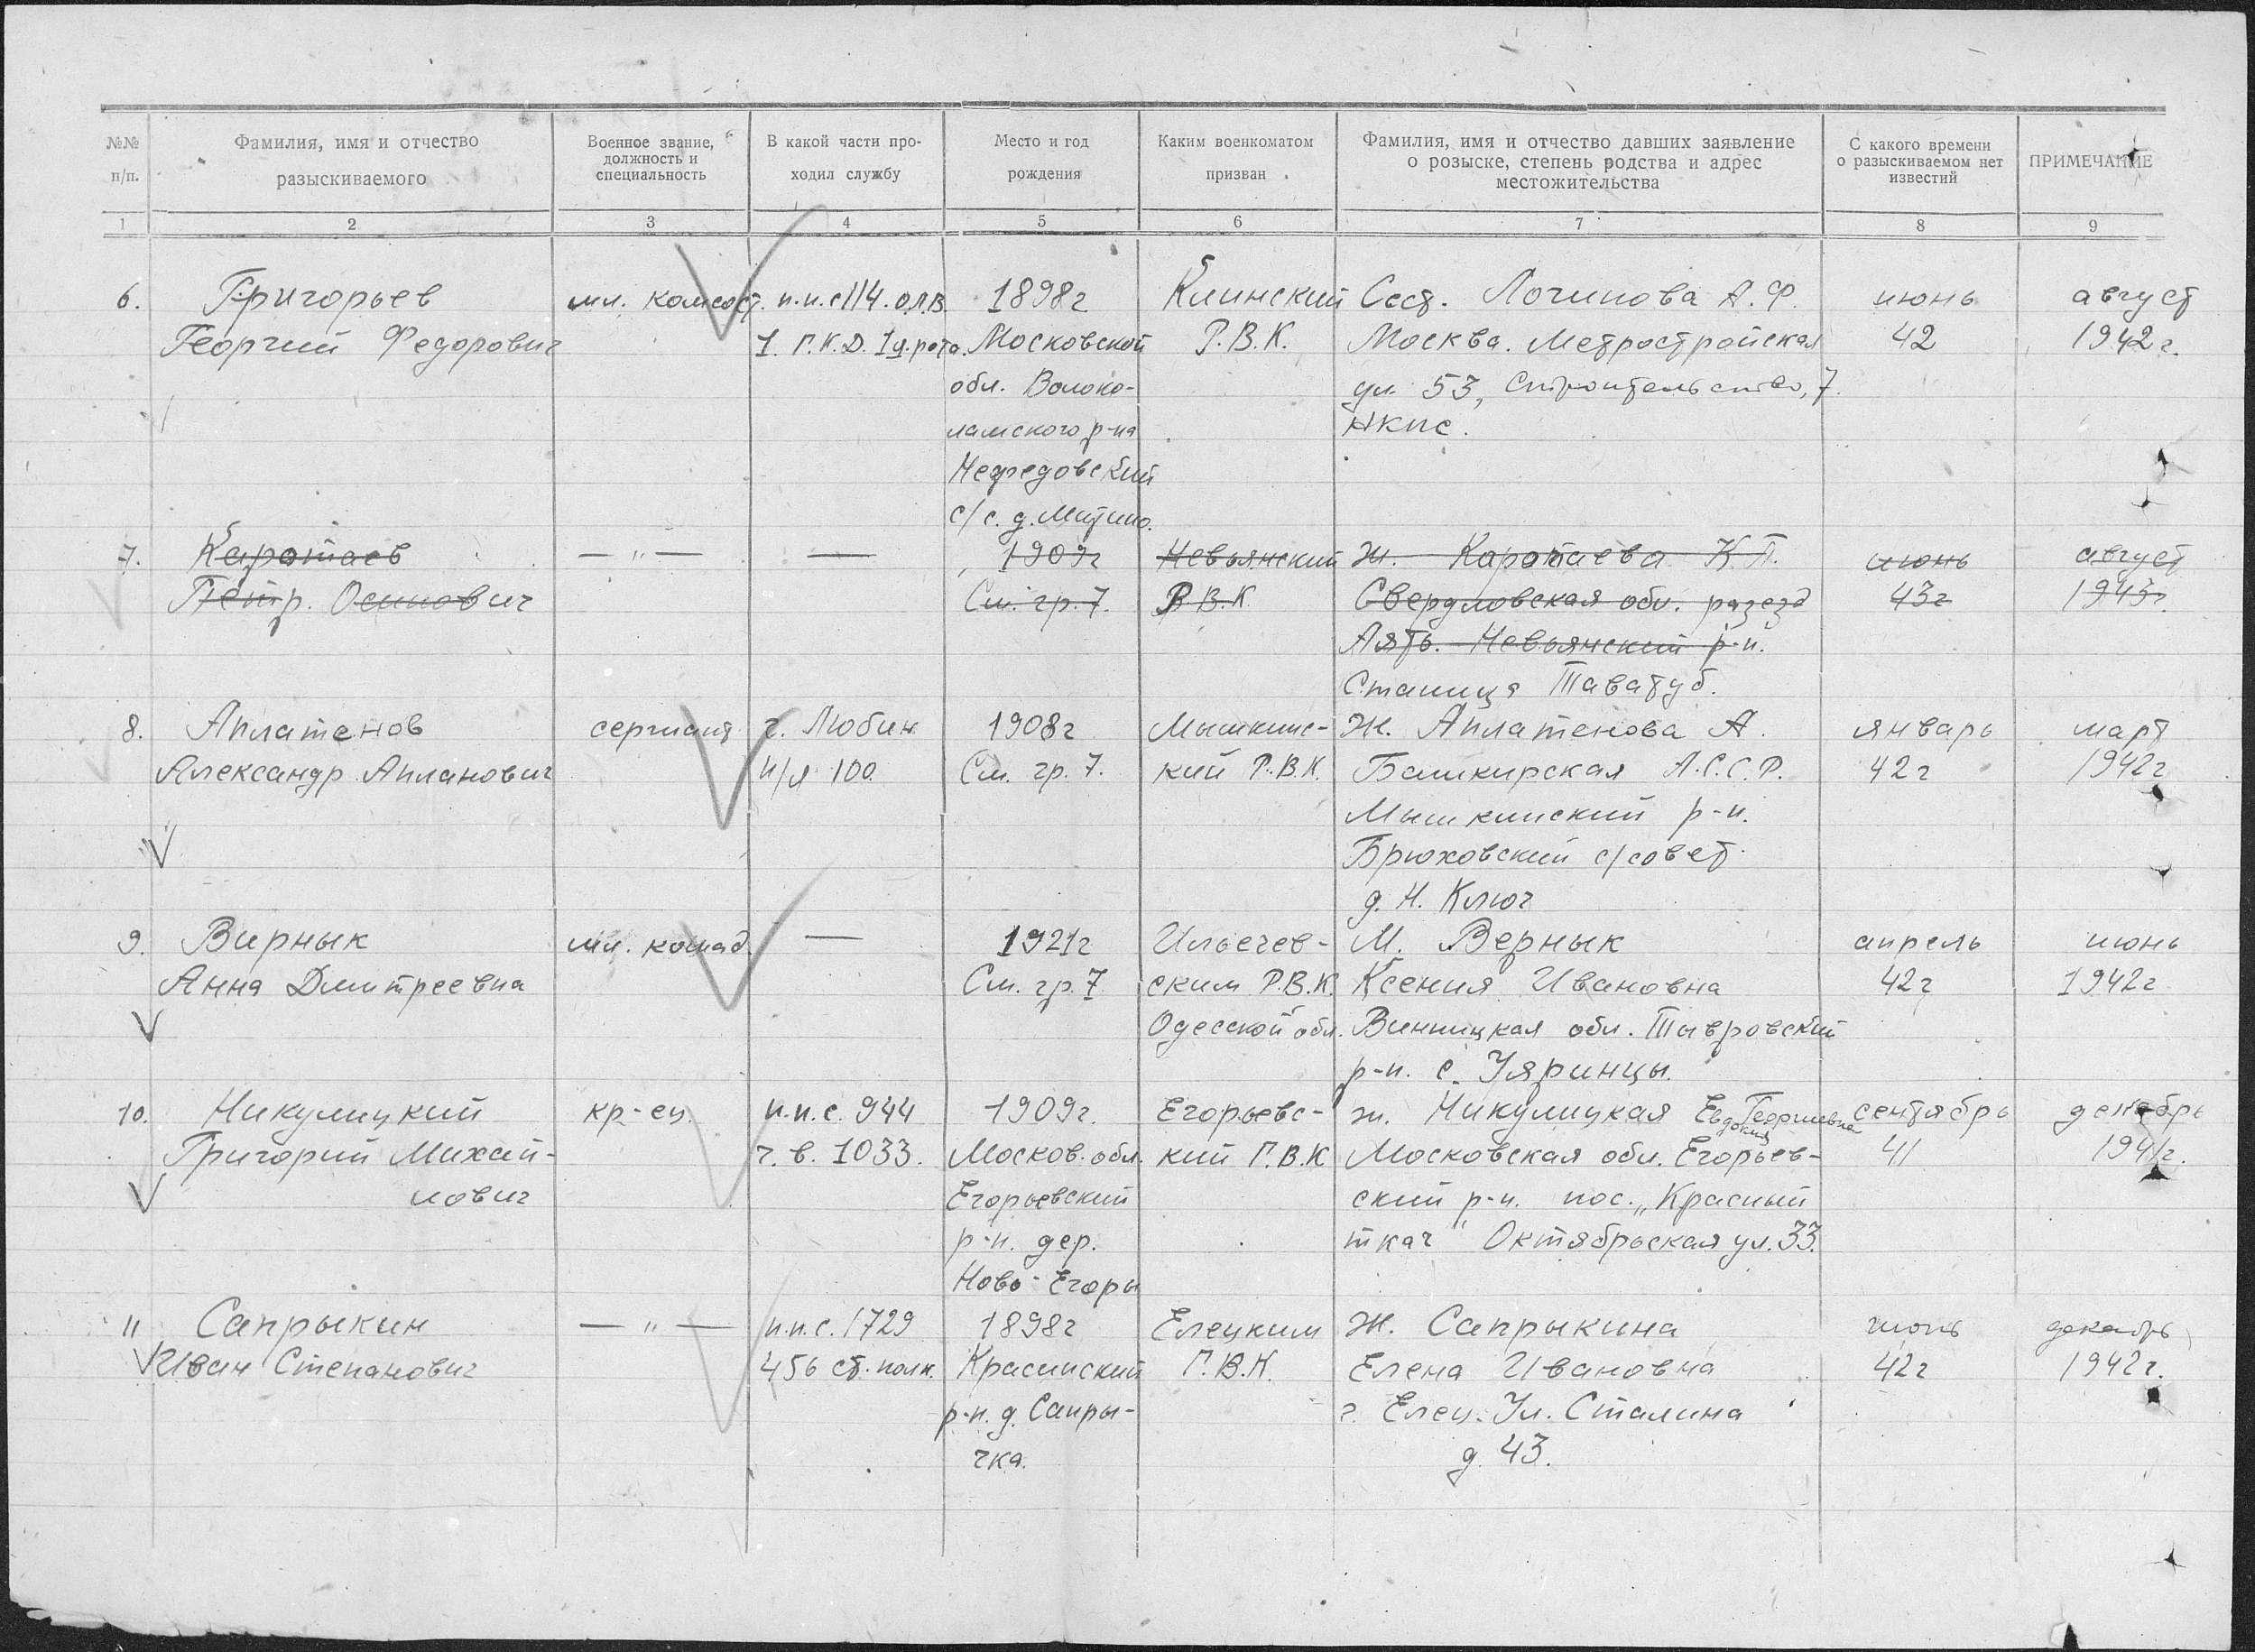 №№ п/п.
Фамилия, имя и отчество разыскиваемого
Военное звание, должность и специальность
В какой части проходил службу
Место и год рождения
Каким военкоматом призван
Фамилия, имя и отчество давших заявление о розыске, степень родства и адрес местожительства
С какого времени о разыскиваемом нет известий
ПРИМЕЧАНИЕ
1 2 3 4 5 6 7 8 9
6. Григорьев мл. комсост. п.п.с 114. О.Л.В. 1898г Клинский Сест. Логинова А. Ф. июнь август
Георгий Федорович 1. Г.К.Д. 1 у.рота. Московской Р.В.К. Москва. Метростройская 42 1942 г.
обл. Волоко- ул. 53, Строительство, 7.
ламского р-на НКПС.
Нефедовский
с/с. д. Митино.
7. Каротаев — " — — 1909г Невьянский Ж. Каротаева К. П. июнь август
Петр. Осипович См. гр. 7. Р.В.К. Свердловская обл. разезд 43г 1943г.
Аять. Невьянский р-н.
Станица Таватуб.
8. Аплатенов сержант г. Любин 1908г Мышкинс- Ж. Аплатенова А. январь март
Александр Апланович п/я 100 См. гр. 7. кий Р.В.К. Башкирская А.С.С.Р. 42г 1942г
Мышкинский р-н.
Брюховский с/совет.
д. Н. Ключ
9. Вирнык мл. комад. — 1921г Ильечев- М. Вернык апрель июнь
Анна Дмитреевна См. гр. 7 ским Р.В.К. Ксения Ивановна 42г 1942г
Одесской обл. Винницкая обл. Тывровский
р-н. с. Уяринцы.
10. Никулицкий кр-ец. п.п.с. 944 1909г. Егорьевс- ж. Никулицкая Евдокия Георгиевна сентябрь декабрь
Григорий Михай- г. в. 1033. Москов. обл. кий Г.В.К Московская обл. Егорьев- 41 1941г.
лович Егорьевский ский р-н. пос. „Красный
р-н. дер. ткач" Октябрьская ул. 33.
Ново-Егоры
11 Сапрыкин — " — п.п.с. 1729 1898г Елецким Ж. Сапрыкина июнь декабрь
Иван Степанович 456 ст. полк. Красинский Г.В.К. Елена Ивановна 42г 1942г.
р-н. д. Сапры- г. Елец. Ул. Сталина
чка. д. 43.